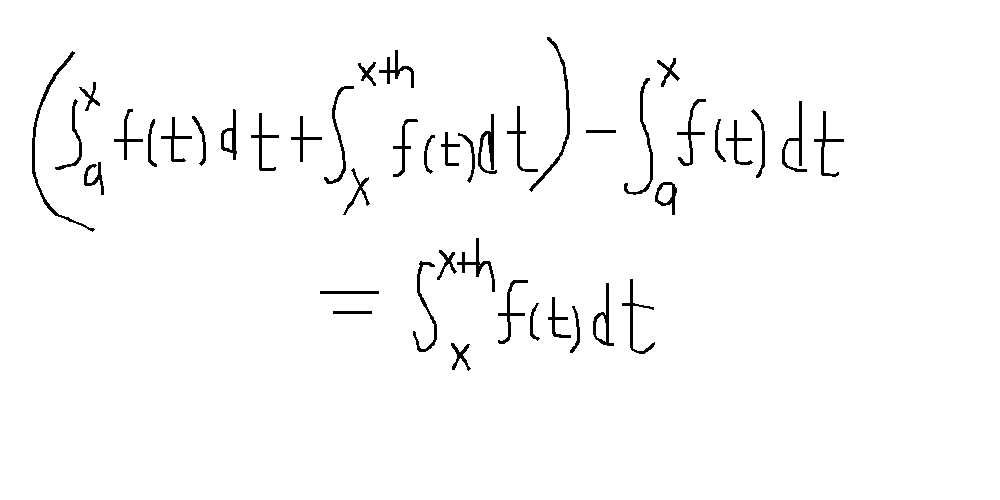 (∫ₐˣ f(t)dt + ∫ₓˣ⁺ʰ f(t)dt) − ∫ₐˣ f(t)dt
= ∫ₓˣ⁺ʰ f(t)dt